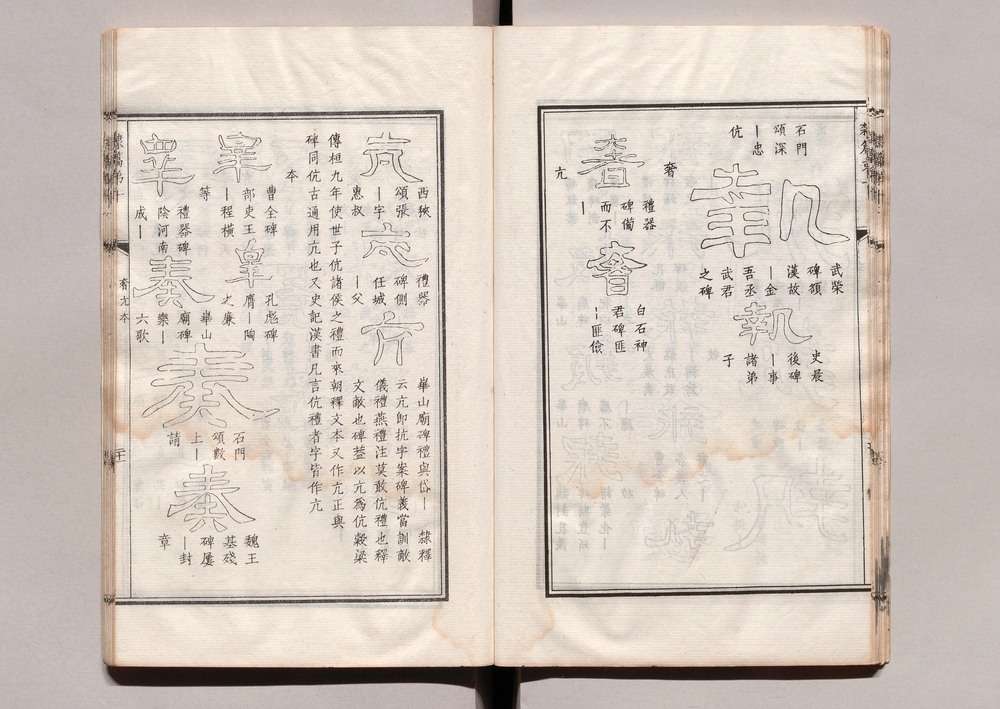 石門
頌深
丨忠
伉
執
武榮
碑領
漢故
丨金
吾丞
武君
之碑
執
史晨
後碑
丨事
諸弟
子
奢
奢
禮器
碑
而不
丨
奢
白石神
君碑匪
丨匪儉
亢
亢
西狹
頌張
丨字
惠叔
亢
禮器
碑側
任城
丨父
亢
華山廟碑禮與岱丨 隸釋
云亢即抗字案碑義當訓敵
儀禮燕禮注莫敢伉禮也釋
文敵也碑葢以亢爲伉穀梁
傳桓九年使世子伉諸侯之禮而來朝釋文本又作亢正與
碑同伉古通用亢也又史記漢書凡言伉禮者字皆作亢
本
曹全碑
部吏王
丨程橫
等
孔彪碑
膺丨陶
之廉
禮器碑
陰河南
成丨
奏
華山
廟碑
樂丨
六歌
奏
石門
頌數
上丨
請
奏
魏王
基殘
碑屢
丨封
章
奢亢本